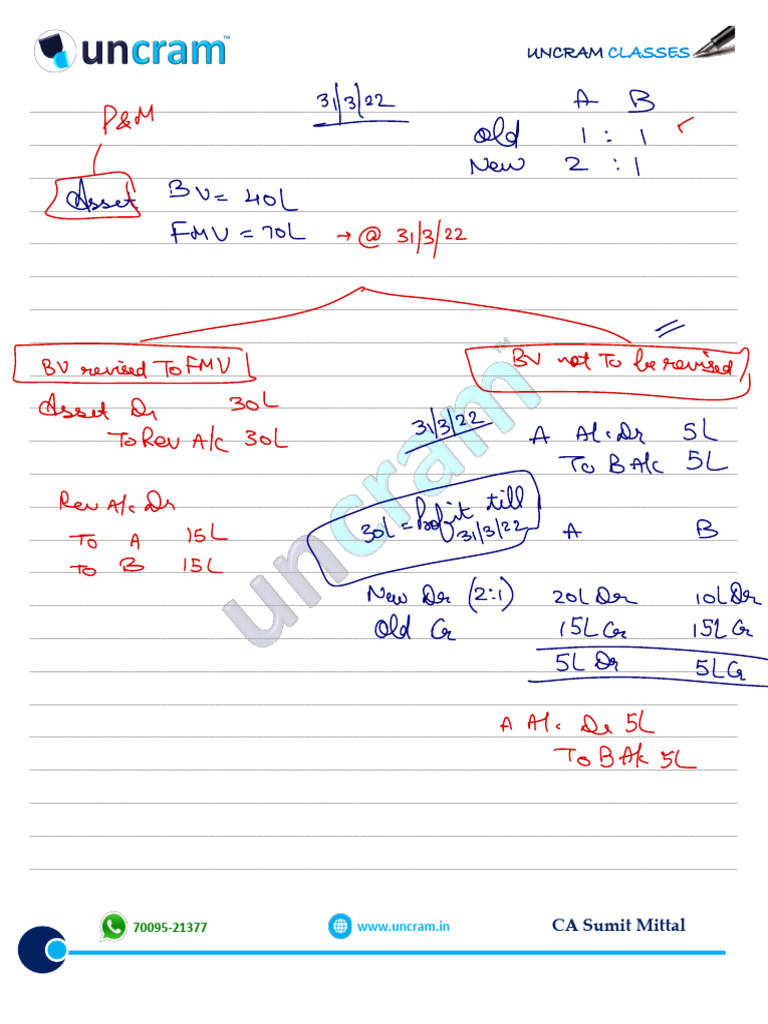 uncram™
UNCRAM CLASSES
31/3/22
A B
P&M
Old 1 : 1
New 2 : 1
Asset BV = 40L
FMV = 70L → @ 31/3/22
BV revised To FMV
BV not To be revised
Asset Dr 30L
To Rev A/c 30L
31/3/22
A A/c Dr 5L
To B A/c 5L
Rev A/c Dr
To A 15L
To B 15L
30L = Profit till 31/3/22
A B
New Dr (2:1) 20L Dr 10L Dr
Old Cr 15L Cr 15L Cr
5L Dr 5L Cr
A A/c Dr 5L
To B A/c 5L
uncram™
70095-21377
www.uncram.in
CA Sumit Mittal